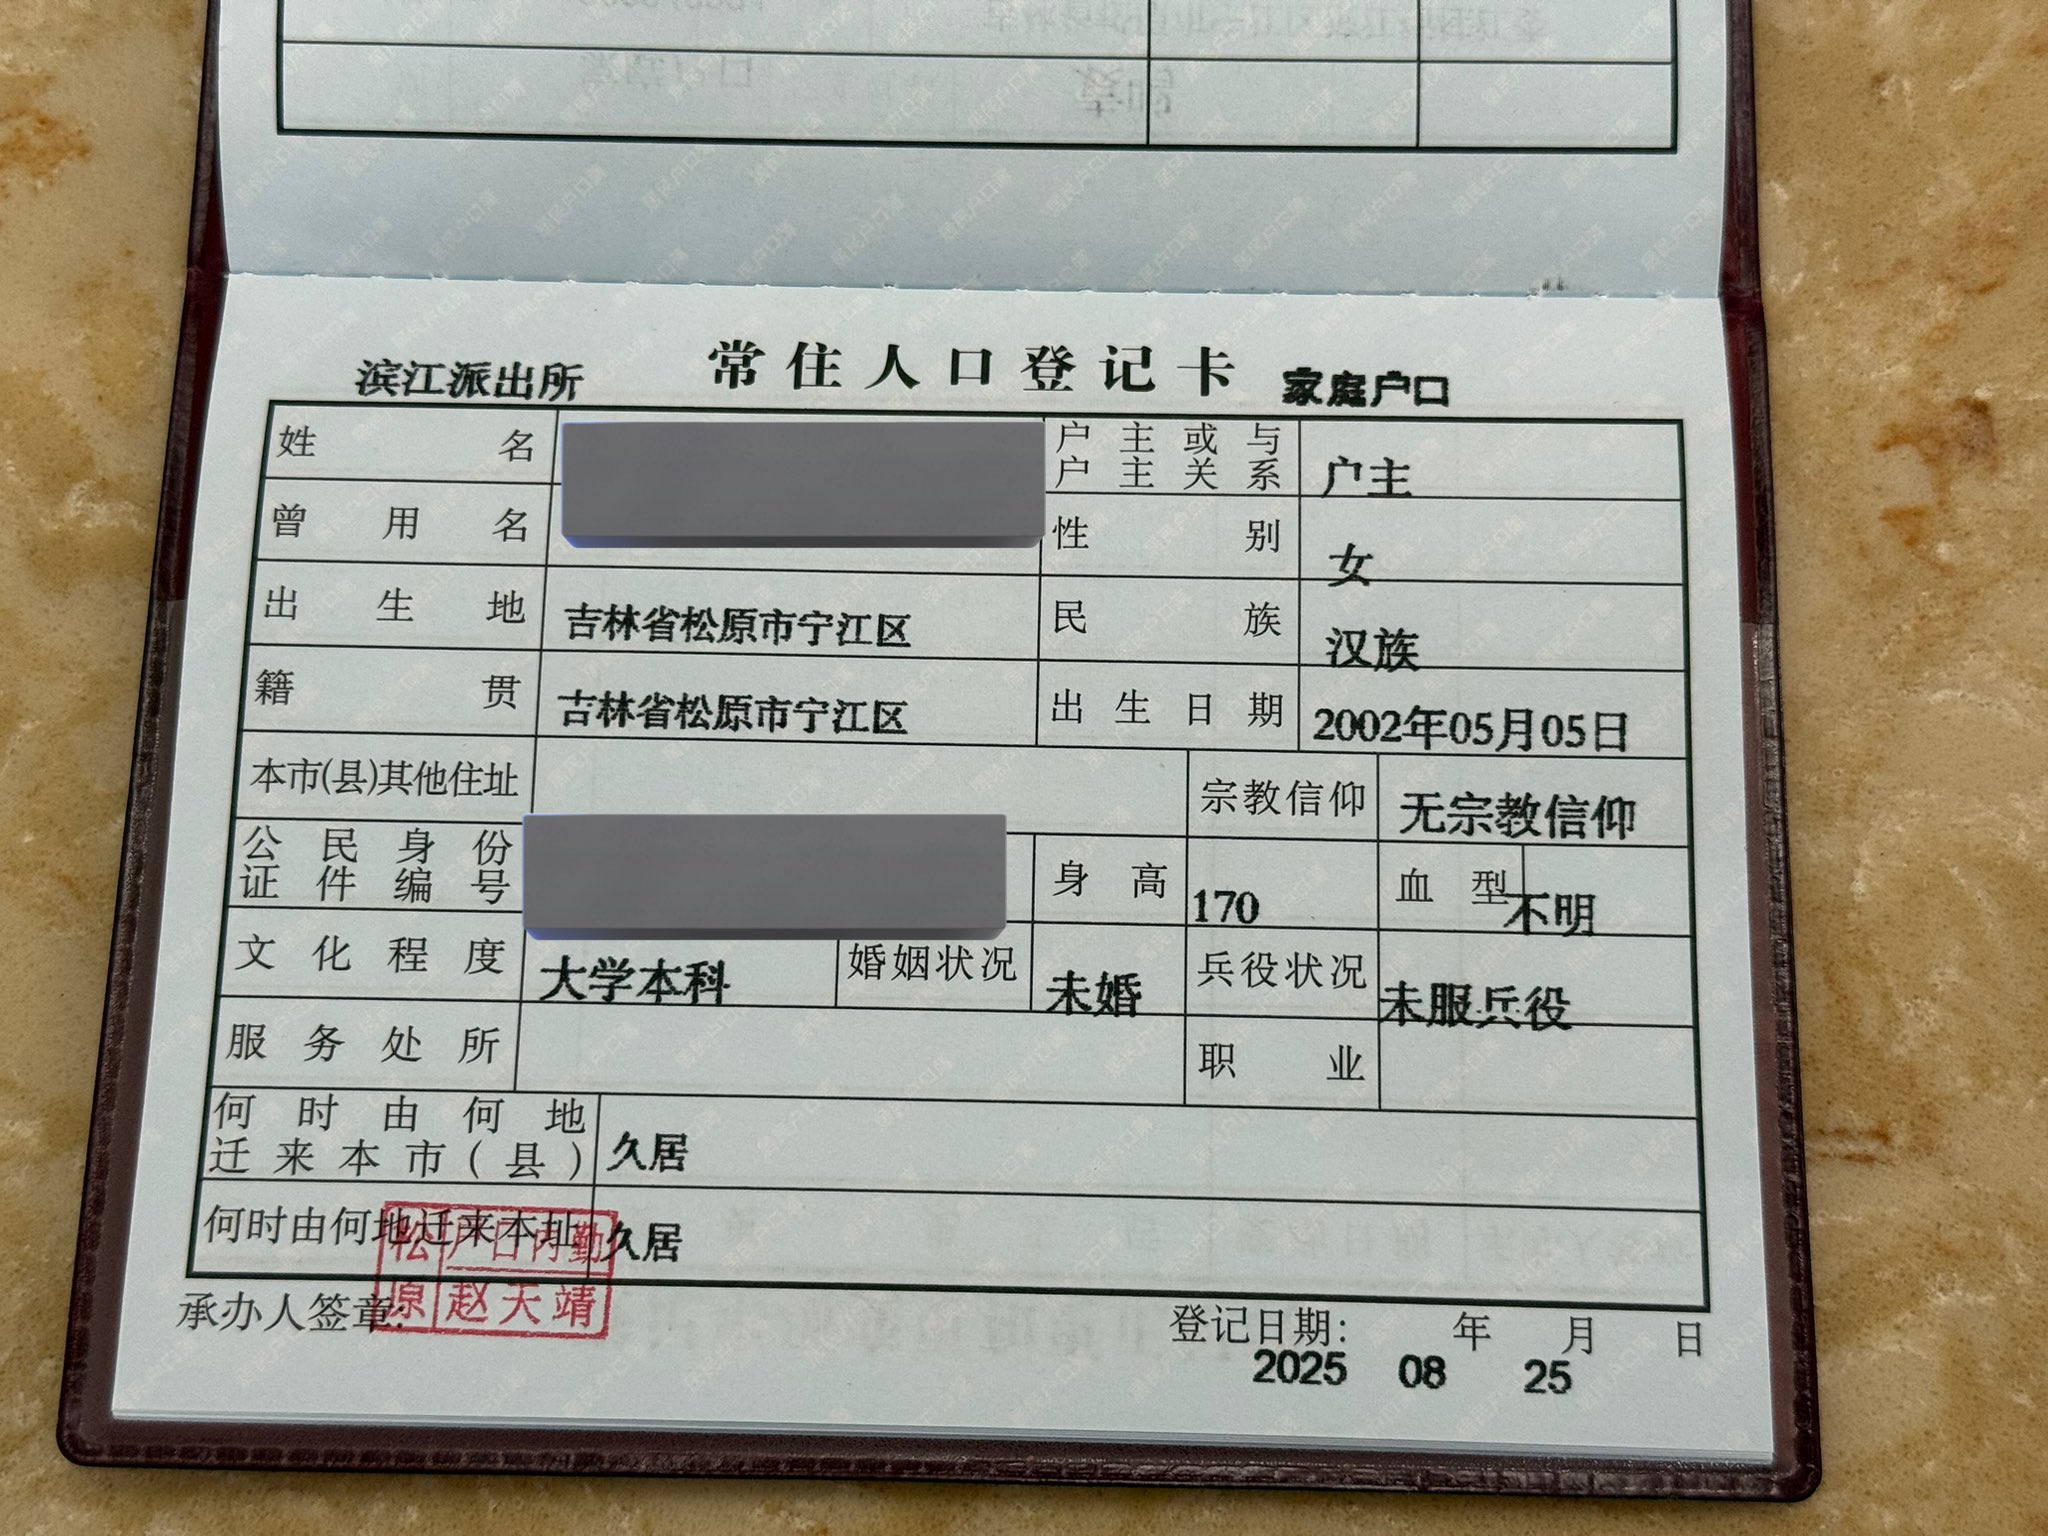 滨江派出所 常住人口登记卡 家庭户口
姓名 户主或与户主关系 户主
曾用名 性别 女
出生地 吉林省松原市宁江区 民族 汉族
籍贯 吉林省松原市宁江区 出生日期 2002年05月05日
本市(县)其他住址 宗教信仰 无宗教信仰
公民身份证件编号 身高 170 血型 不明
文化程度 大学本科 婚姻状况 未婚 兵役状况 未服兵役
服务处所 职业
何时由何地迁来本市(县) 久居
何时由何地迁来本址 久居
松原 户口内勤 赵天靖
承办人签章: 登记日期: 年 月 日
2025 08 25